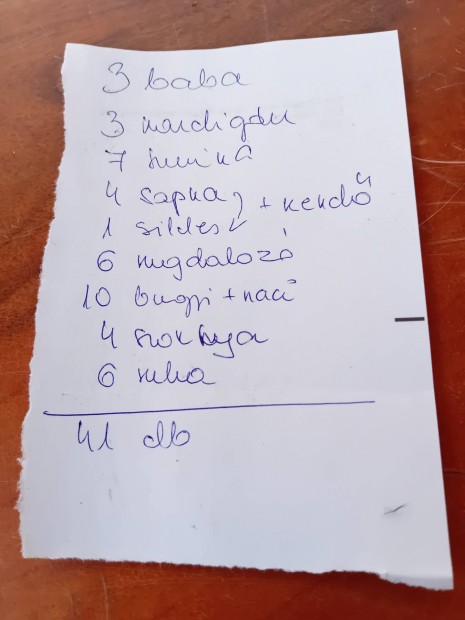 3 baba
3 kardigán
7 tunika
4 sapka, + kendő
1 sildes
6 rugdalozó
10 bugyi + naci
4 szoknya
6 ruha
41 db